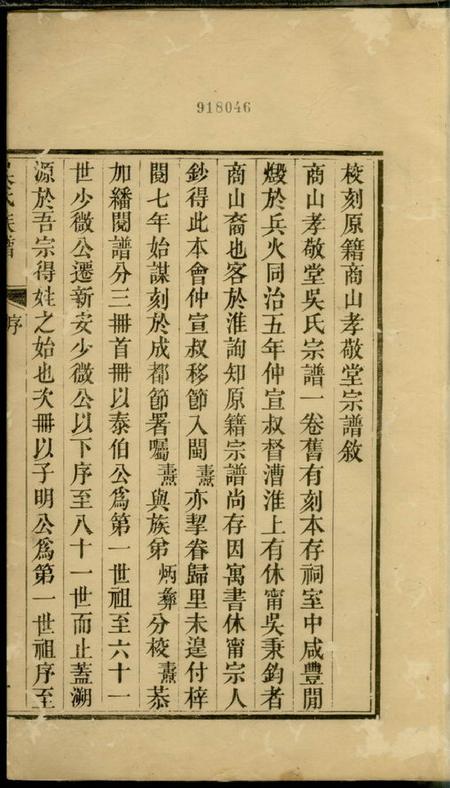 918046
校刻原籍商山孝敬堂宗譜敘
商山孝敬堂吳氏宗譜一卷舊有刻本存祠室中咸豐閒
燬於兵火同治五年仲宣叔督漕淮上有休甯吳秉鈞者
商山裔也客於淮詢知原籍宗譜尚存因寓書休甯宗人
鈔得此本會仲宣叔移節入閩燾亦挈眷歸里未遑付梓
閱七年始謀刻於成都節署囑燾與族弟炳彝分校燾恭
加繙閱譜分三冊首冊以泰伯公爲第一世祖至六十一
世少微公遷新安少微公以下序至八十一世而止蓋溯
源於吾宗得姓之始也次冊以子明公爲第一世祖序至
氏族譜
序